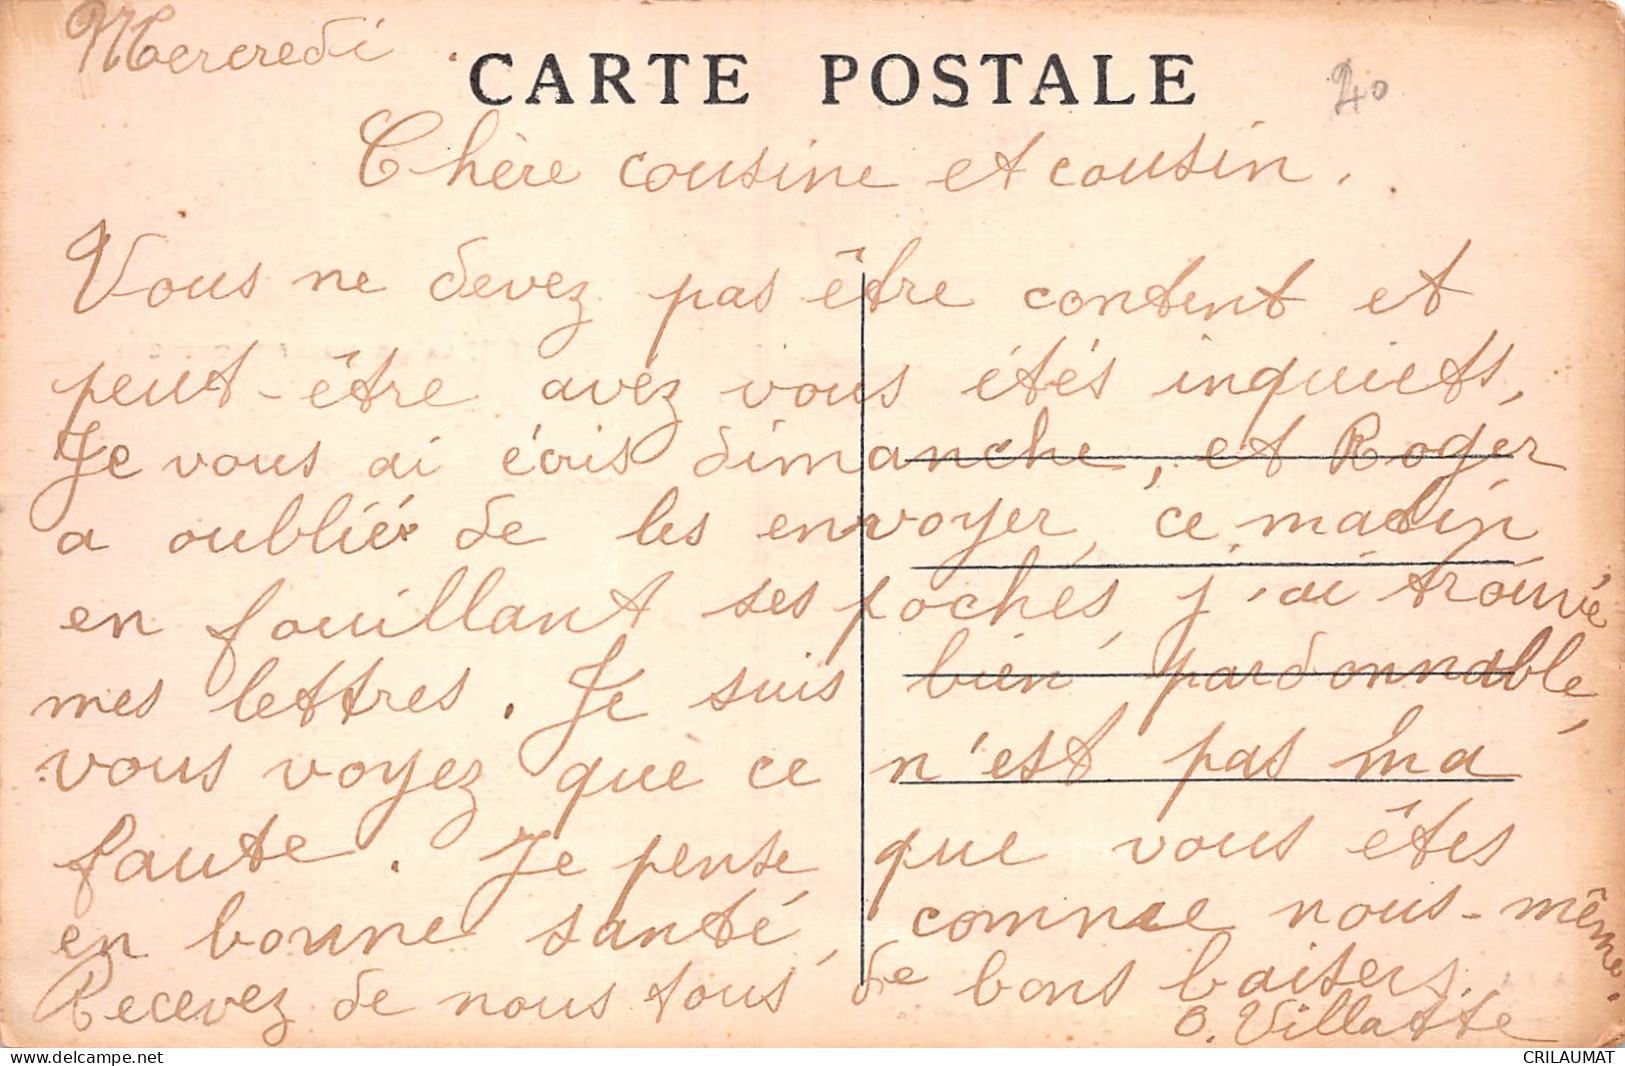 Mercredi
CARTE POSTALE
20
Chère cousine et cousin.
Vous ne devez pas être content et
peut-être avez vous étés inquiets,
Je vous ai écris dimanche, et Roger
a oublié de les envoyer, ce matin
en fouillant ses poches, j'ai trouvé
mes lettres. Je suis bien pardonnable,
vous voyez que ce n'est pas ma
faute. Je pense que vous êtes
en bonne santé, comme nous-même.
Recevez de nous tous de bons baisers.
O. Villatte
CRILAUMAT